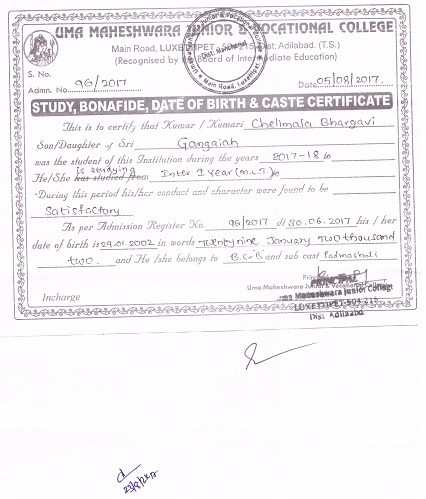 UMA MAHESHWARA JUNIOR & VOCATIONAL COLLEGE
Main Road, LUXETTIPET - 215, Dist: Adilabad. (T.S.)
(Recognised by Board of Intermediate Education)
S. No.
Admn. No. 96/2017
Date 05/08/2017.
STUDY, BONAFIDE, DATE OF BIRTH & CASTE CERTIFICATE
This is to certify that Kumar / Kumari Chelimala Bhargavi
Son/Daughter of Sri Gangaiah
was the student of this Institution during the years 2017-18 to
is studying
He/She has studied from Inter I year (M.L.T) to
During this period his/her conduct and character were found to be
Satisfactory
As per Admission Register No. 96/2017 dt 30.06.2017 his / her
date of birth is 29.01.2002 in words Twenty nine January Two thousand
two. and He /she belongs to B.C 'B' and sub cast Padmashali
Incharge
Uma Maheshwara Junior & Vocational College
Uma Maheshwara Junior College
LUXETTIPET-504 215
Dist Adilabad